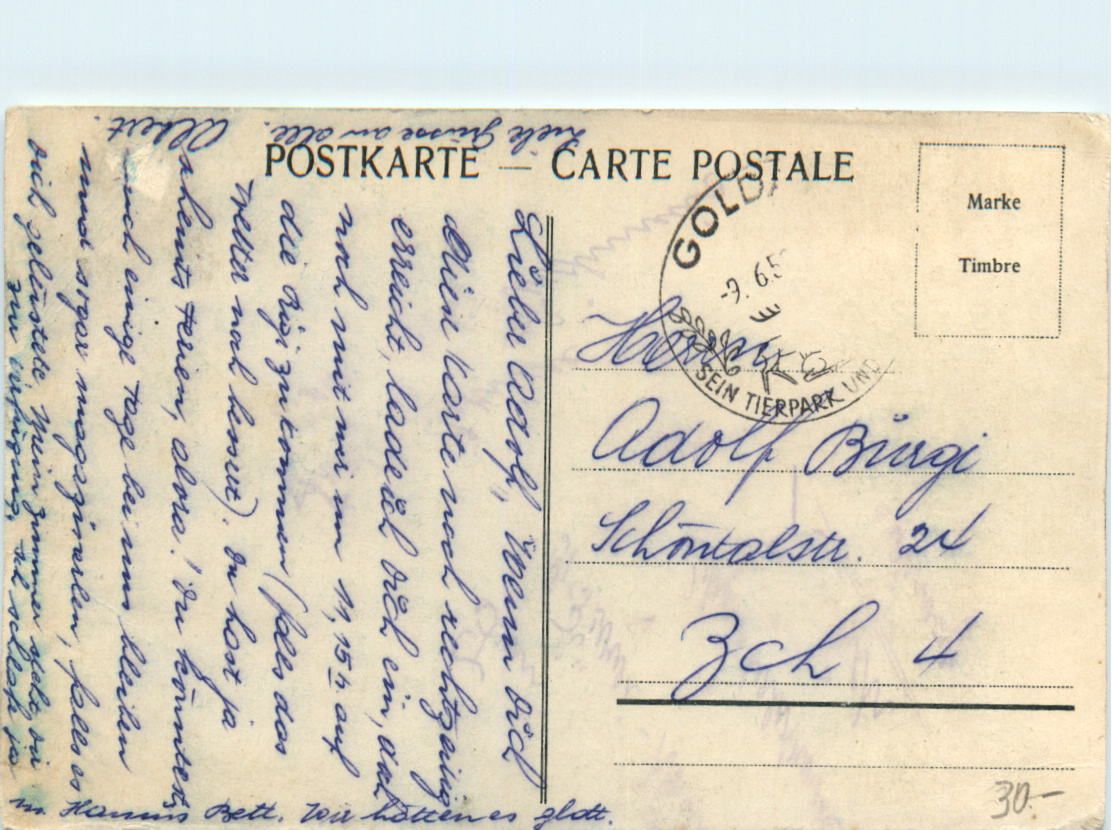 POSTKARTE — CARTE POSTALE
Marke
Timbre
GOLD
-9. 6.5
SEIN TIERPARK UND
Herrn
Adolf Bürgi
Schöntalstr. 24
Zch 4
30.—
Lieber Adolf, wenn dich
Karte noch rechtzeitig
erreicht, lade ich dich ein, doch
noch mit mir um 11,15 h auf
die Rigi zu kommen (falls das
Wetter noch besser). Du hast ja
bereits Ferien, alora! Du könntest
auch einige Tage bei uns bleiben
und sogar falls es
dich gelüstete. Mein Zimmer steht dir
zur Verfügung, ich schlafe ja
in Bett. Wir hätten es glatt.
Viele Grüsse an alle.
Albert.